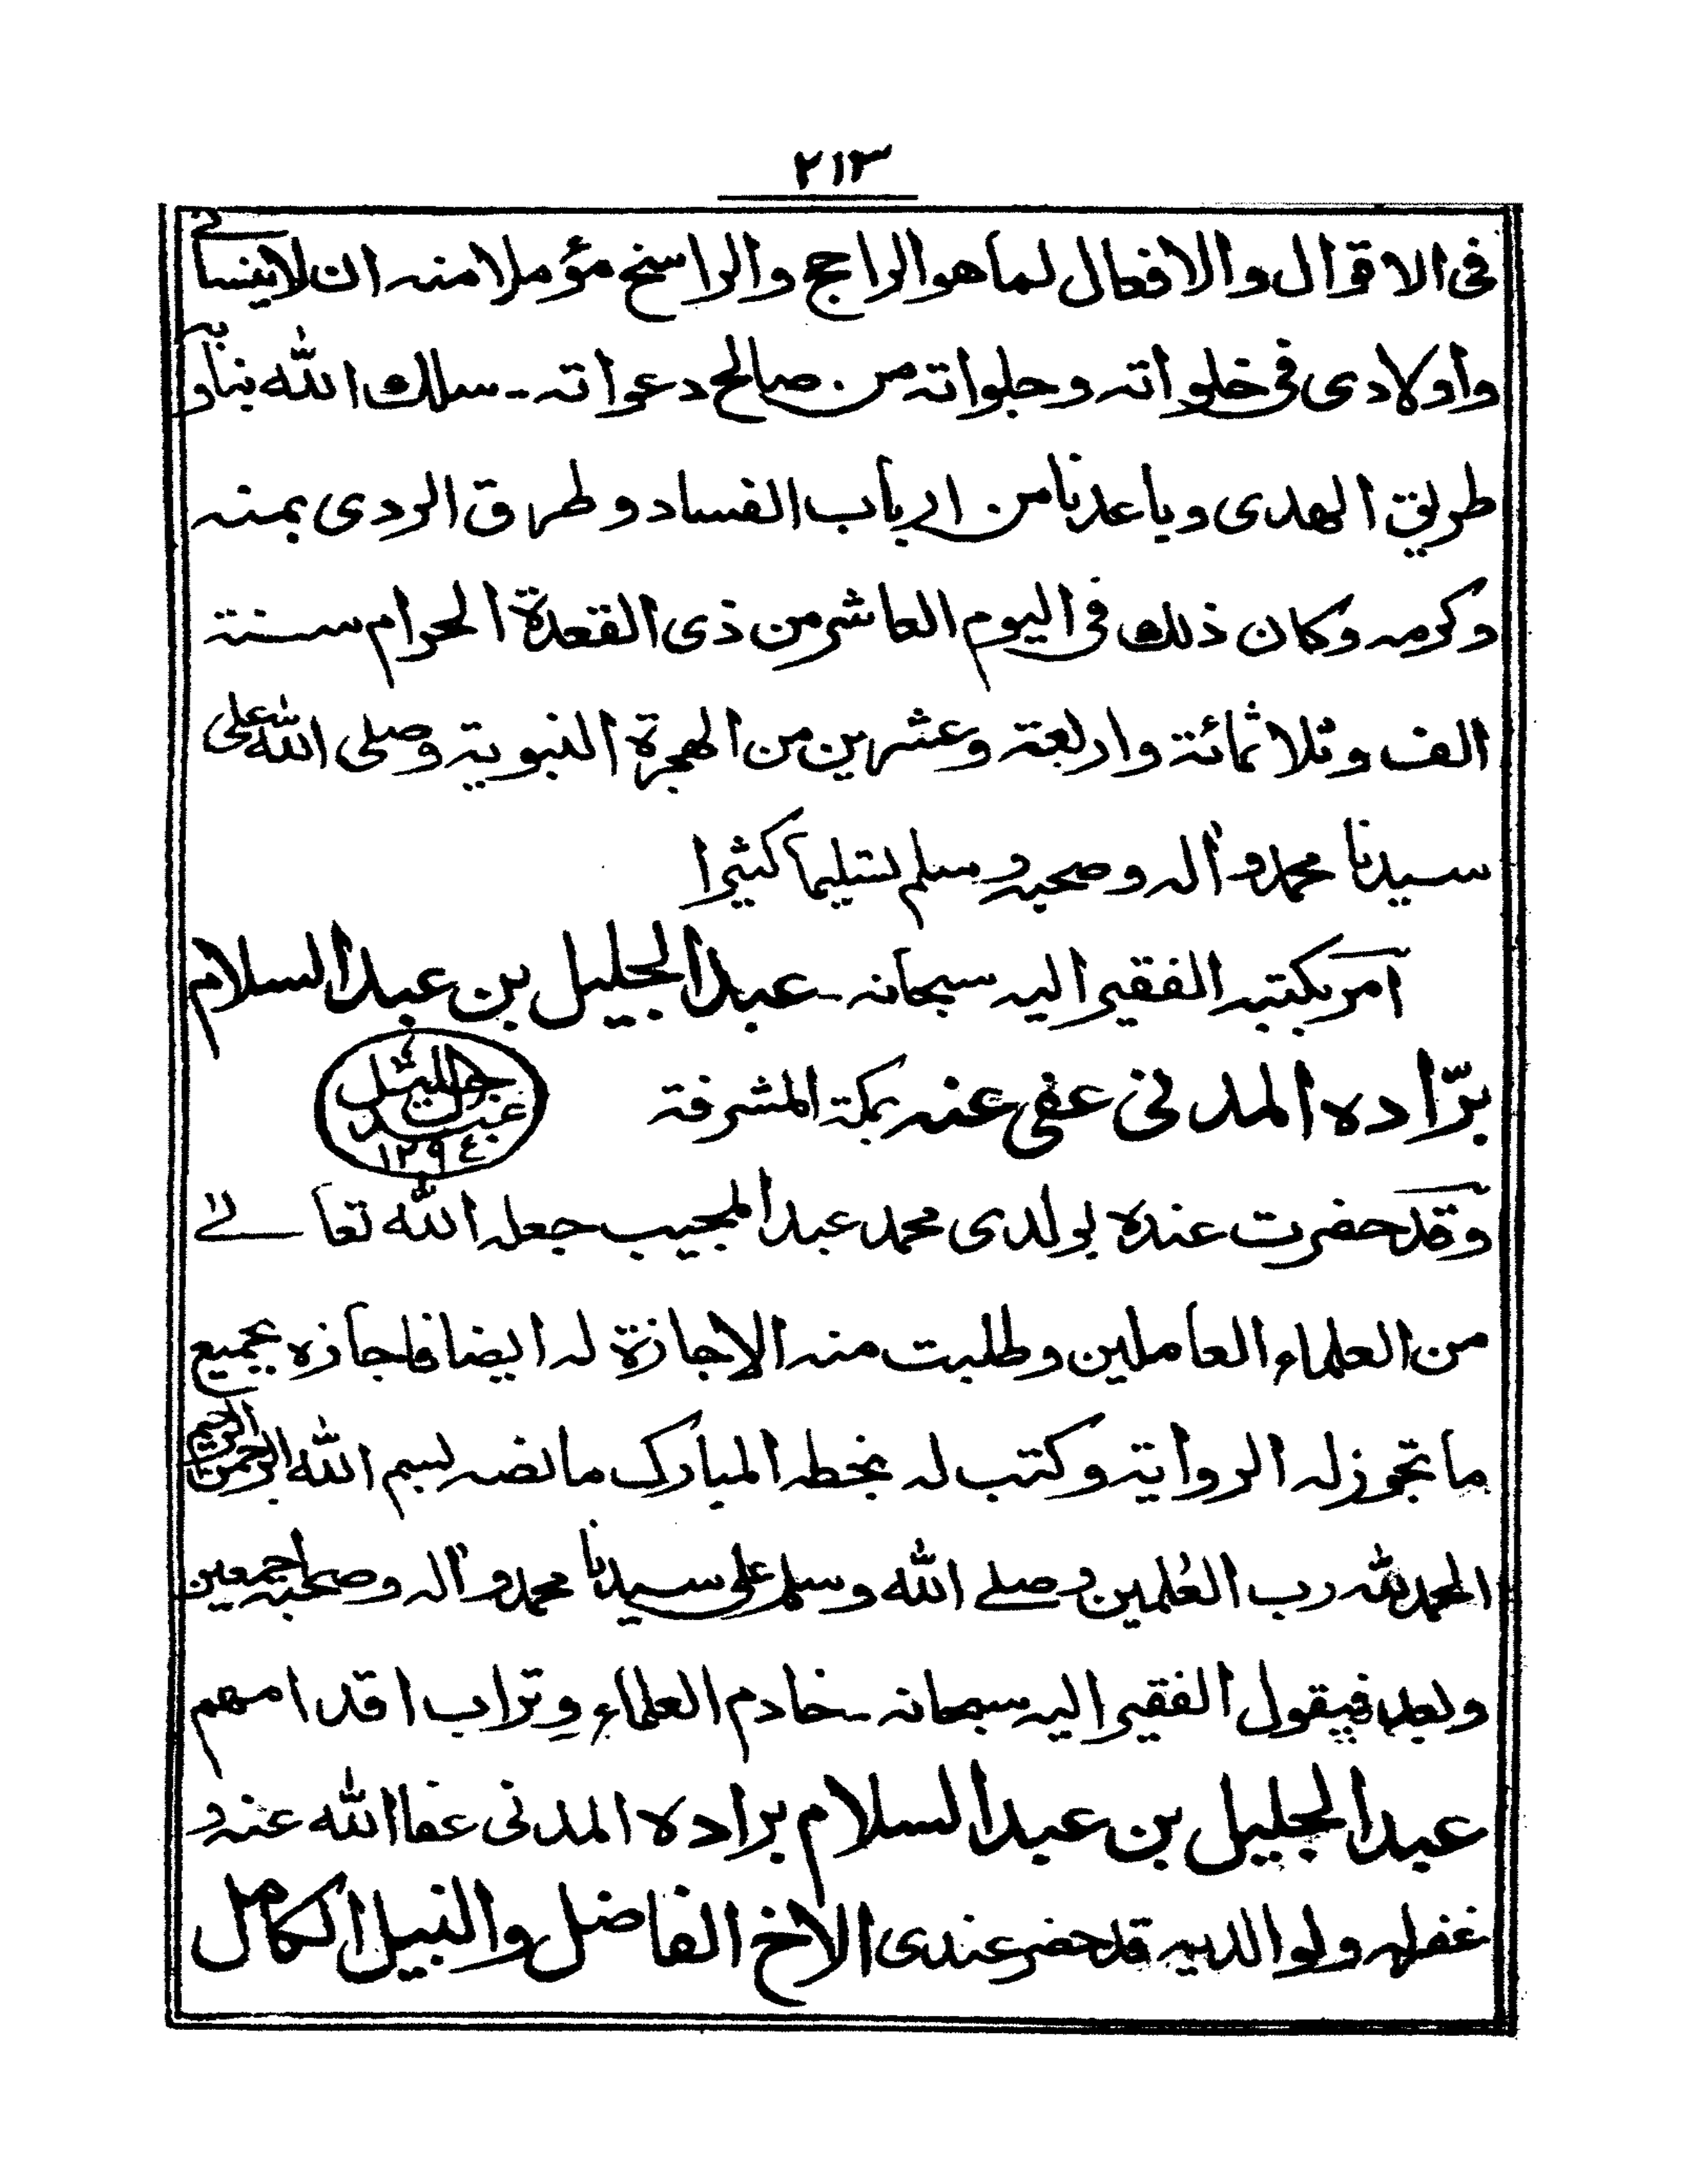 ٢١٣
فى الاقوال والافعال لما هو الراجح والراسخ مؤملا منه ان لا ينسانى
واولادى فى خلواته وجلواته من صالح دعواته ـ سلك الله بنا وبه
طريق الهدى وباعدنا من ارباب الفساد وطرق الردى بمنه
وكرمه وكان ذلك فى اليوم العاشر من ذى القعدة الحرام سنة
الف وثلاثمائة واربعة وعشرين من الهجرة النبوية وصلى الله على
سيدنا محمد وآله وصحبه وسلم تسليما كثيرا
امر بكتبه الفقير اليه سبحانه ـ عبد الجليل بن عبد السلام
برّاده المدنى عفى عنه بمكة المشرفة
عبد الجليل
١٢٩٤
وقد حضرت عنده بولدى محمد عبد المجيب جعله الله تعالے
من العلماء العاملين وطلبت منه الاجازة له ايضا فاجازه بجميع
ما تجوز له الرواية وكتب له بخطه المبارك ما نصه بسم الله الرحمن الرحيم
الحمد لله رب العٰلمين وصلے الله وسلم على سيدنا محمد وآله وصحبه اجمعين
وبعد فيقول الفقير اليه سبحانه ـ خادم العلماء وتراب اقدامهم
عبد الجليل بن عبد السلام براده المدنى عفا الله عنه و
غفر له ولوالديه قد حضر عندى الاخ الفاضل والنبيل الكامل